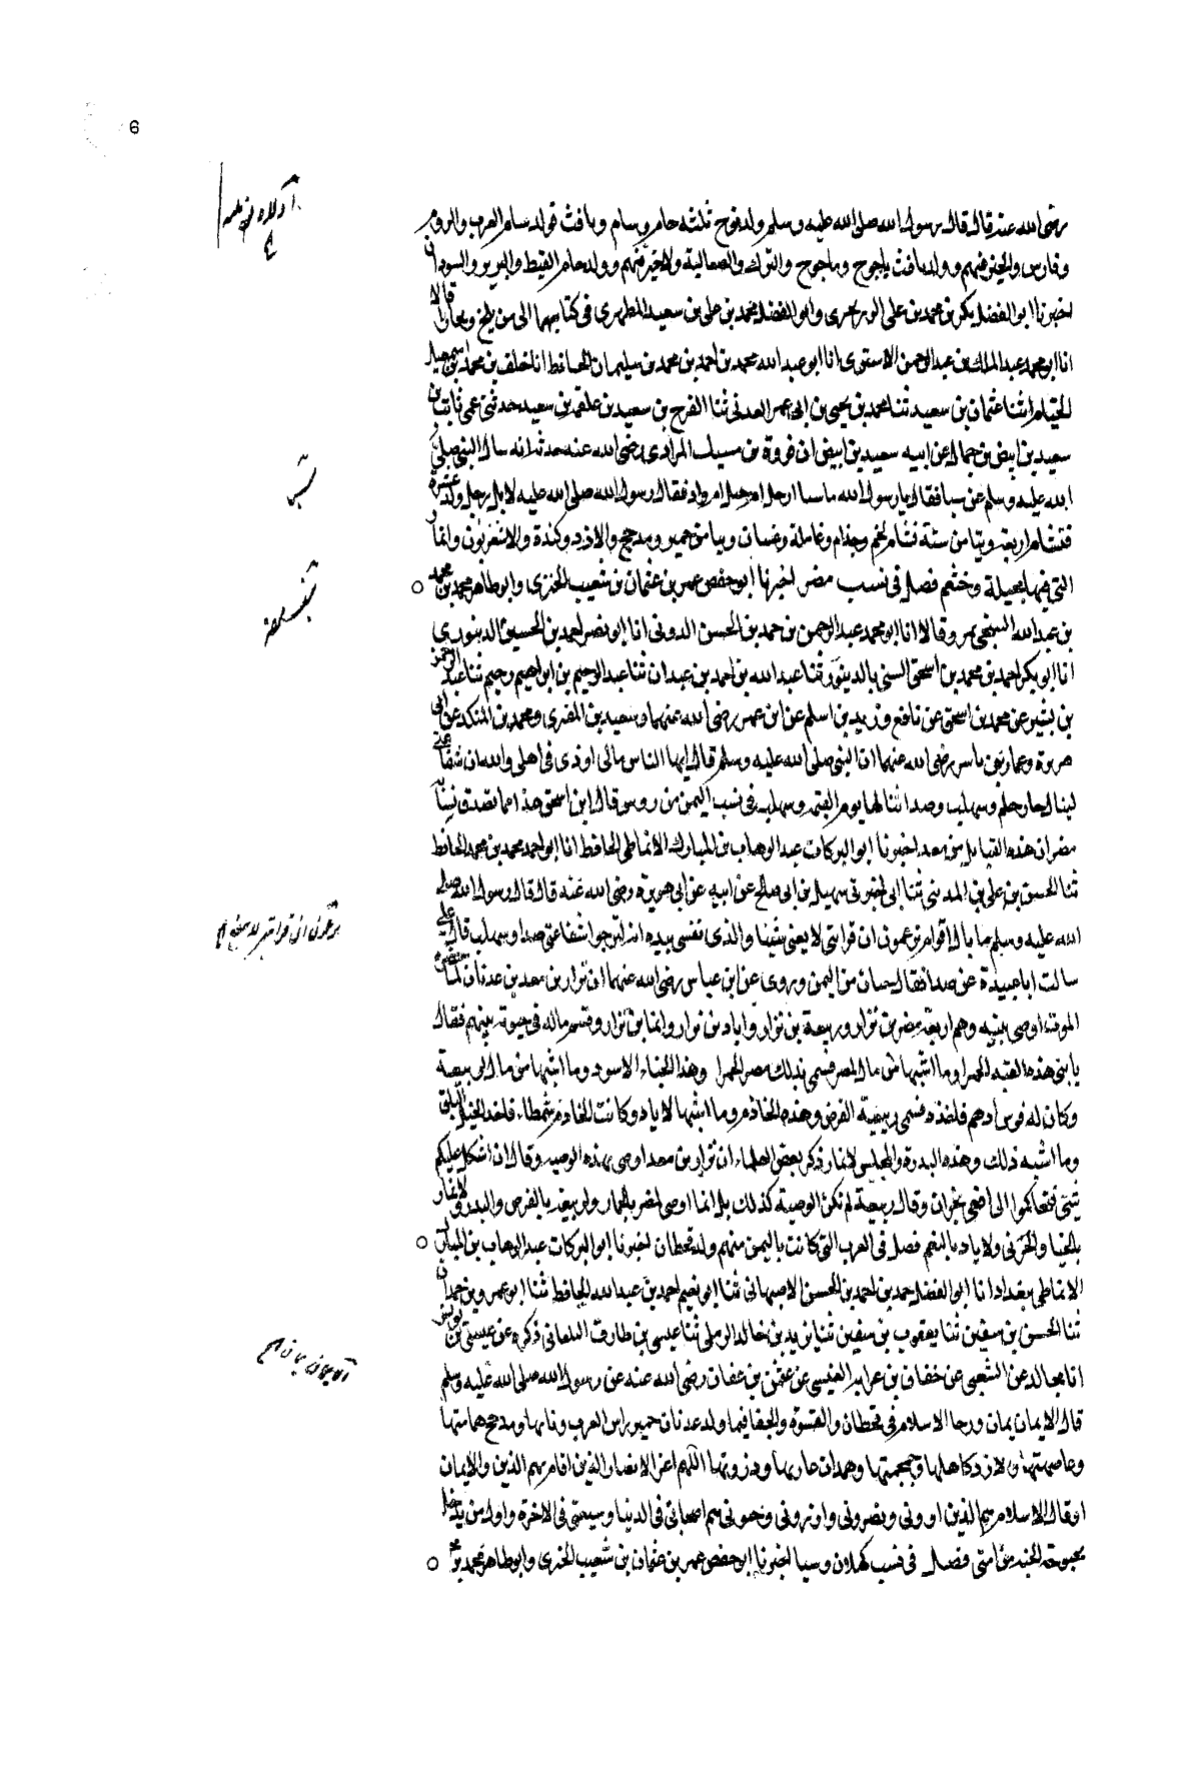 6
رضى الله عنه قال قال رسول الله صلى الله عليه وسلم ولد نوح ثلثه حام وسام ويافث فولد سام العرب والروم
وفارس والخير فيهم وولد يافث ياجوج وماجوج والترك والصقالبة ولا خير فيهم وولد حام القبط والبربر والسودان
اخبرنا ابو الفضل بكر بن محمد بن على وابو الفضل محمد بن على بن سعيد المطهرى فى كتابيهما الى من بلخ وبخارا قالا
انا ابو محمد عبد الملك بن عبد الرحمن انا ابو عبد الله محمد بن احمد بن محمد بن سليمان الحافظ انا خلف بن محمد بن اسمعيل
الخيام ثنا عثمان بن سعيد ثنا محمد بن يحيى بن ابى عمر العدنى ثنا الفرج بن سعيد بن علقمة بن سعيد حدثنى عمى ثابت بن
سعيد بن ابيض بن حمال عن ابيه سعيد بن ابيض ان فروة بن مسيك المرادى رضى الله عنه حدثه انه سال النبى صلى
الله عليه وسلم عن سبا فقال يا رسول الله ما سبا ارجل ام جبل ام واد فقال رسول الله صلى الله عليه لا بل رجل ولد عشرة
فتشام اربعة وتيامن ستة فتشام لخم وجذام وعاملة وغسان وتيامن حمير ومدحج والازد وكندة والاشعريون وانمار
التى فيها بجيلة وخثعم فصل فى نسب مضر اخبرنا ابو حفص عمر بن عثمان بن شعيب الجنزى وابو طاهر محمد بن محمد
بن عبد الله السنجى بمرو قالا انا ابو محمد عبد الرحمن بن حمد بن الحسن الدونى انا ابو نصر احمد بن الحسين الدينورى
انا ابو بكر احمد بن محمد بن اسحق السنى بالدينور ثنا عبد الله بن احمد بن عبدان ثنا عبد الرحيم بن ابراهيم دحيم ثنا عبد الرحمن
بن بشير عن محمد بن اسحق عن نافع وزيد بن اسلم عن ابن عمر رضى الله عنهما وسعيد بن المقبرى ومحمد بن المنكدر عن ابى
هريرة وعمار بن ياسر رضى الله عنهما ان النبى صلى الله عليه وسلم قال ايها الناس مالى اوذى فى اهلى والله ان شفاعتى
لينالها حا وحكم وسهلب وصدا تنالها يوم القيمة وسهلب فى نسب اليمن من دوس قال ابن اسحق هذا مما يصدق نساب
مضر ان هذه القبايل من معد اخبرنا ابو البركات عبد الوهاب بن المبارك الانماطى الحافظ انا ابو احمد محمد بن محمد الحافظ
ثنا الحسن بن على بن المدينى ثنا ابى اخبرنى سهيل بن ابى صالح عن ابيه عن ابى هريرة رضى الله عنه قال قال رسول الله صلى
الله عليه وسلم ما بال اقوام يزعمون ان قرابتى لا يغنى شيئا والذى نفسى بيده انه لترجوا شفاعتى صدا وسهلب قال على
سالت ابا عبيدة عن صدا فقال حيان من اليمن وروى عن ابن عباس رضى الله عنهما ان نزار بن معد بن عدنان لما حضره
الموت اوصى بنيه وهم اربعة مضر بن نزار وربيعة بن نزار واياد بن نزار وانمار بن نزار وقسم ماله فى حيوته بينهم فقال
يا بنى هذه القبة الحمرا وما اشبهها من مالى لمضر فسمى بذلك مضر الحمرا وهذا الخباء الاسود وما اشبهها من مالى لربيعة
وكان له فرس ادهم فاخذه فسمى ربيعة الفرس وهذه الخادم وما اشبهها لاياد وكانت الخادم شمطاء فاخذ الخيل البلق
وما اشبه ذلك وهذه البدرة والمجلس لانمار ذكر بعض العلماء ان نزار بن معد اوصى بهذه الوصيه وقال ان اشكل عليكم
شئ فتحاكموا الى افعى نجران وقال ربيعة لم تكن الوصية كذلك بل انما اوصى لمضر بالحمار ولربيعة بالفرس والبدرة لانمار
بالخبا والخرثى ولاياد بالنعم فصل فى العرب التى كانت باليمن منهم ولد قحطان اخبرنا ابو البركات عبد الوهاب بن المبارك
الانماطى ببغداد انا ابو الفضل حمد بن احمد بن الحسن الاصبهانى ثنا ابو نعيم احمد بن عبد الله الحافظ ثنا ابو عمرو بن حمدان
ثنا الحسن بن سفين ثنا يعقوب بن سفين ثنا يزيد بن خالد الرملى ثنا عيسى بن طارق ذكره عن عيسى بن يونس
انا مجالد عن الشعبى عن خفاف بن عرابه العنسى عن عثمن بن عفان رضى الله عنه عن رسول الله صلى الله عليه وسلم
قال الايمان يمان ورحا الاسلام فى قحطان والقسوة والجفا فيما ولد عدنان حمير راس العرب ونابها ومدحج هامتها
وعاصمتها والازد كاهلها وجمجمتها وهمدان غاربها وذروتها اللهم اعز الانصار الذين اقام بهم الدين والايمان
او قال الاسلام هم الذين اوونى ونصرونى وازرونى وحمونى هم اصحابى فى الدنيا وشيعتى فى الاخرة واول من يدخل
بحبوحة الجنة من امتى فصل فى نسب كهلان وسبا اخبرنا ابو حفص عمر بن عثمان بن شعيب الجنزى وابو طاهر محمد بن محمد